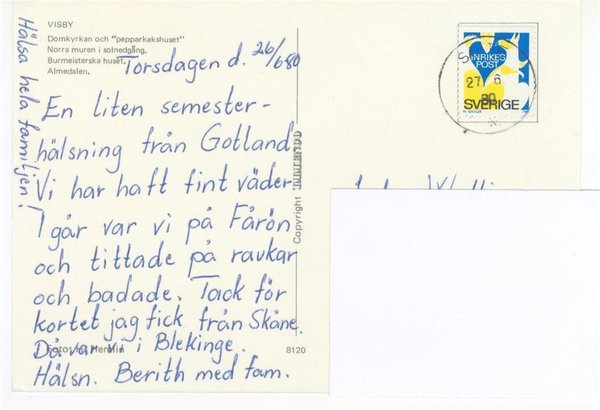 VISBY
Domkyrkan och "pepparkakshuset"
Norra muren i solnedgång.
Burmeisterska huset.
Almedalen.
Torsdagen d. 26/6 80
En liten semester-
hälsning från Gotland.
Vi har haft fint väder.
I går var vi på Fårön
och tittade på raukar
och badade. Tack för
kortet jag fick från Skåne.
Då var vi i Blekinge.
Hälsn. Berith med fam.
Hälsa hela familjen!
Foto:
8120
Copyright
INRIKES
POST
SVERIGE
27 6
80